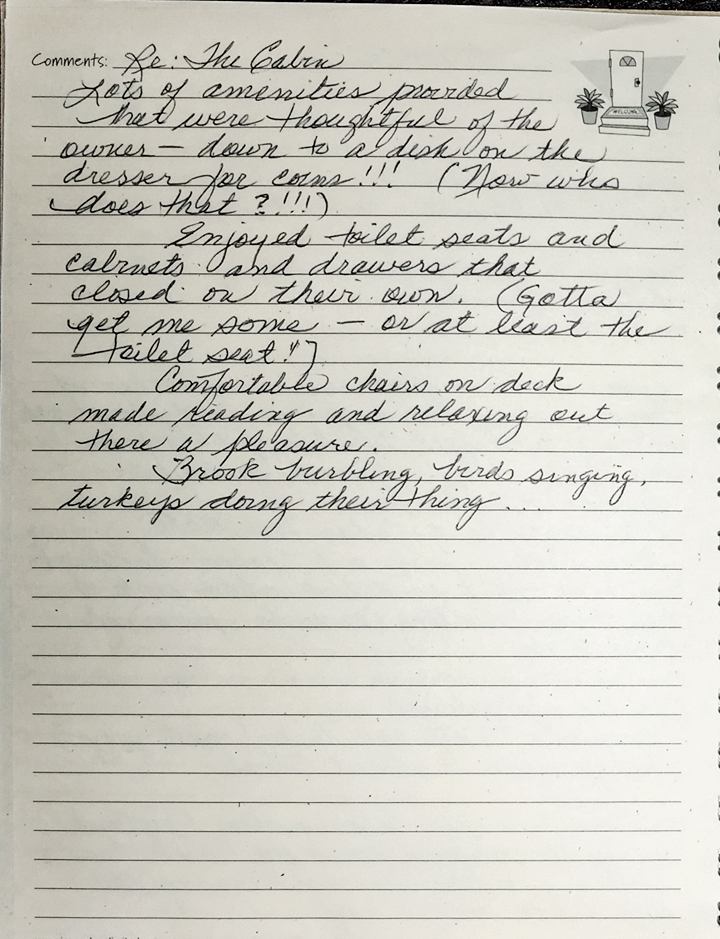 Comments: Re: The Cabin
WELCOME
Lots of amenities provided
that were thoughtful of the
owner — down to a disk on the
dresser for coins!!! (Now who
does that?!!!)
Enjoyed toilet seats and
cabinets and drawers that
closed on their own. (Gotta
get me some — or at least the
toilet seat!")
Comfortable chairs on deck
made reading and relaxing out
there a pleasure.
Brook burbling, birds singing,
turkeys doing their thing...